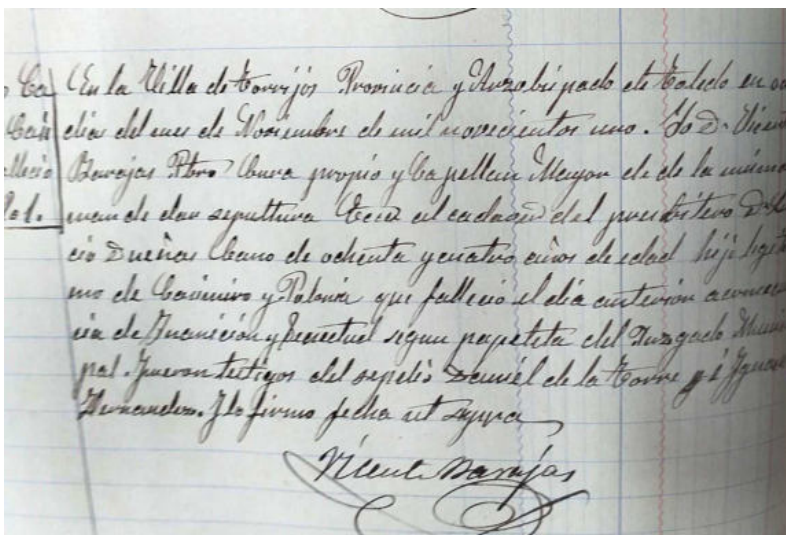 Ca En la Villa de Torrijos Provincia y Arzobispado de Toledo en
dia del mes de Noviembre de mil novecientos uno. Yo D. Vicen
Barajas Pbro Cura propio y Capellan Mayor de de la misma
man de dar sepultura Ecca al cadaver del presbitero D.
cio Dueñas Cano de ochenta y cuatro años de edad hijo legiti
mo de Casimiro y Polonia que fallecio el dia anterior a consecuen
cia de Inanición y Senectud segun papeleta del Juzgado Munici
pal. Fueron testigos del sepelio Daniel de la Torre é Ignacio
Hernandez. Y lo firmo fecha ut supra
Vicente Barajas